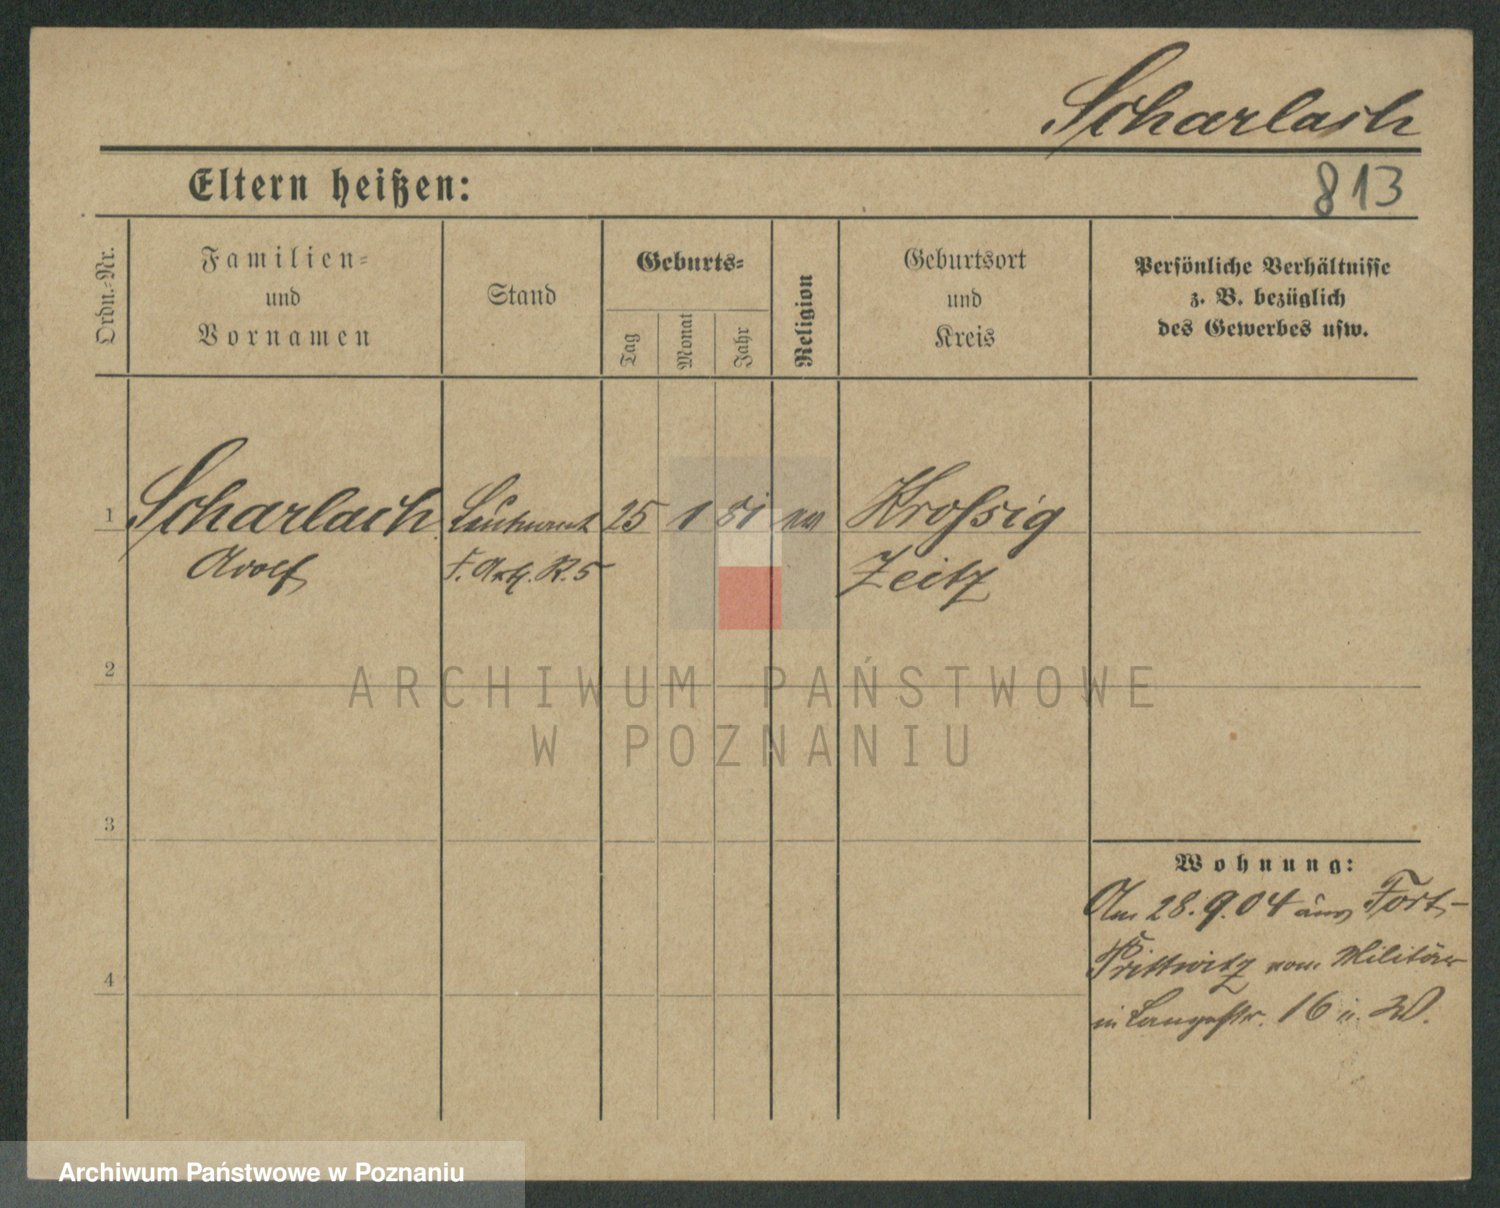 Scharlach
Eltern heißen:
813
Ordn.-Nr.
Familien-
und
Vornamen
Stand
Geburts-
Tag
Monat
Jahr
Religion
Geburtsort
und
Kreis
Persönliche Verhältnisse
z. B. bezüglich
des Gewerbes usw.
1 Scharlach Leutnant 25 1 81 Krossig
Adolf F. Art. R. 5 Zeitz
2
ARCHIWUM PAŃSTWOWE
W POZNANIU
3
Wohnung:
Am 28.9.04 aus Fort-
Prittwitz vom Militär
4
in Langestr. 16 u. W.
Archiwum Państwowe w Poznaniu